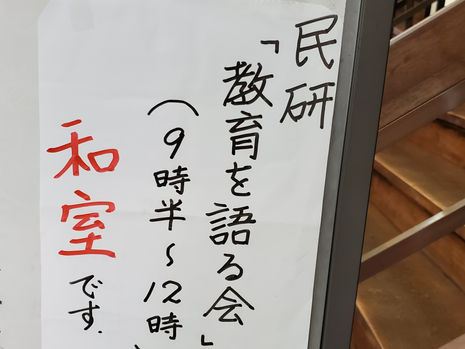 民研
「教育を語る会」
（9時半～12時）
和室です.